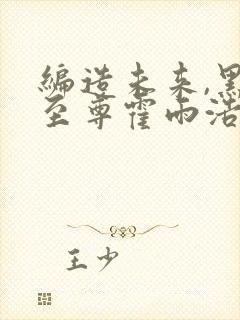 编造未来,黑
至尊霍雨浩
王少